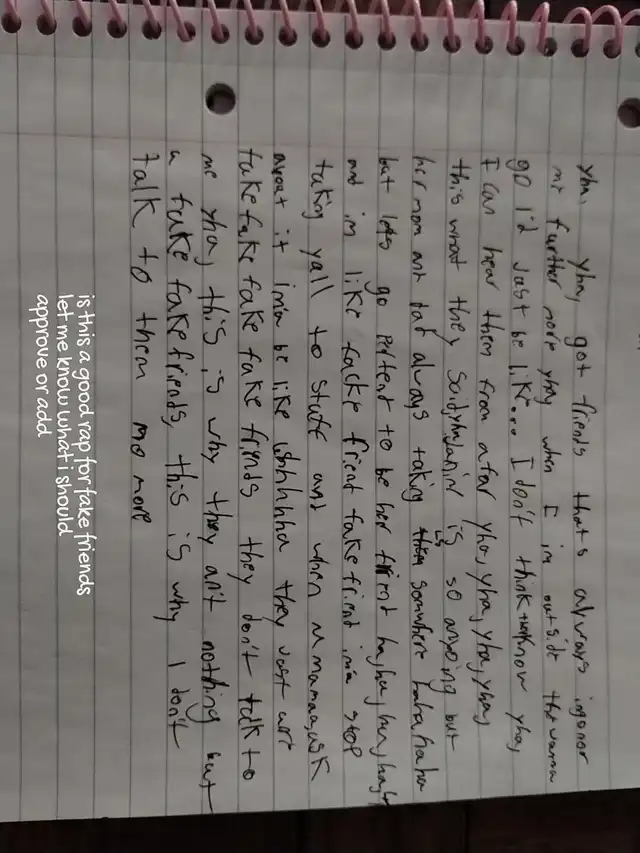 yha, yhay, got friends thats always ingonor
me further more yhay when I im outside they wanna
go I'd Just be like... I don't think know yha,
I can hear them from afar yha, yha, yha, yhay,
this what they said is so anyoing but
her mom ant dad always taking somwhere haha, haha
but lets go pertend to be her frient ha, ha, ha, hah
and im like facke frient fake frient, ima stop
taking yall to stuff and when mamaa, ask
about it imia be like uhhhhhha they Just art
fake fake fake fake friends they don't talk to
me yhay, this is why they ain't nothing but
a fake fake friends, this is why I don't
talk to them no more
is this a good rap for fake friends
let me know what i should
approve or add